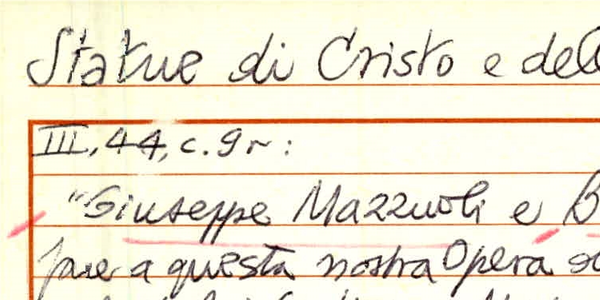 Statue di Cristo e del
III, 44, c. 9r:
"Giuseppe Mazzuoli e B
fare a questa nostra Opera